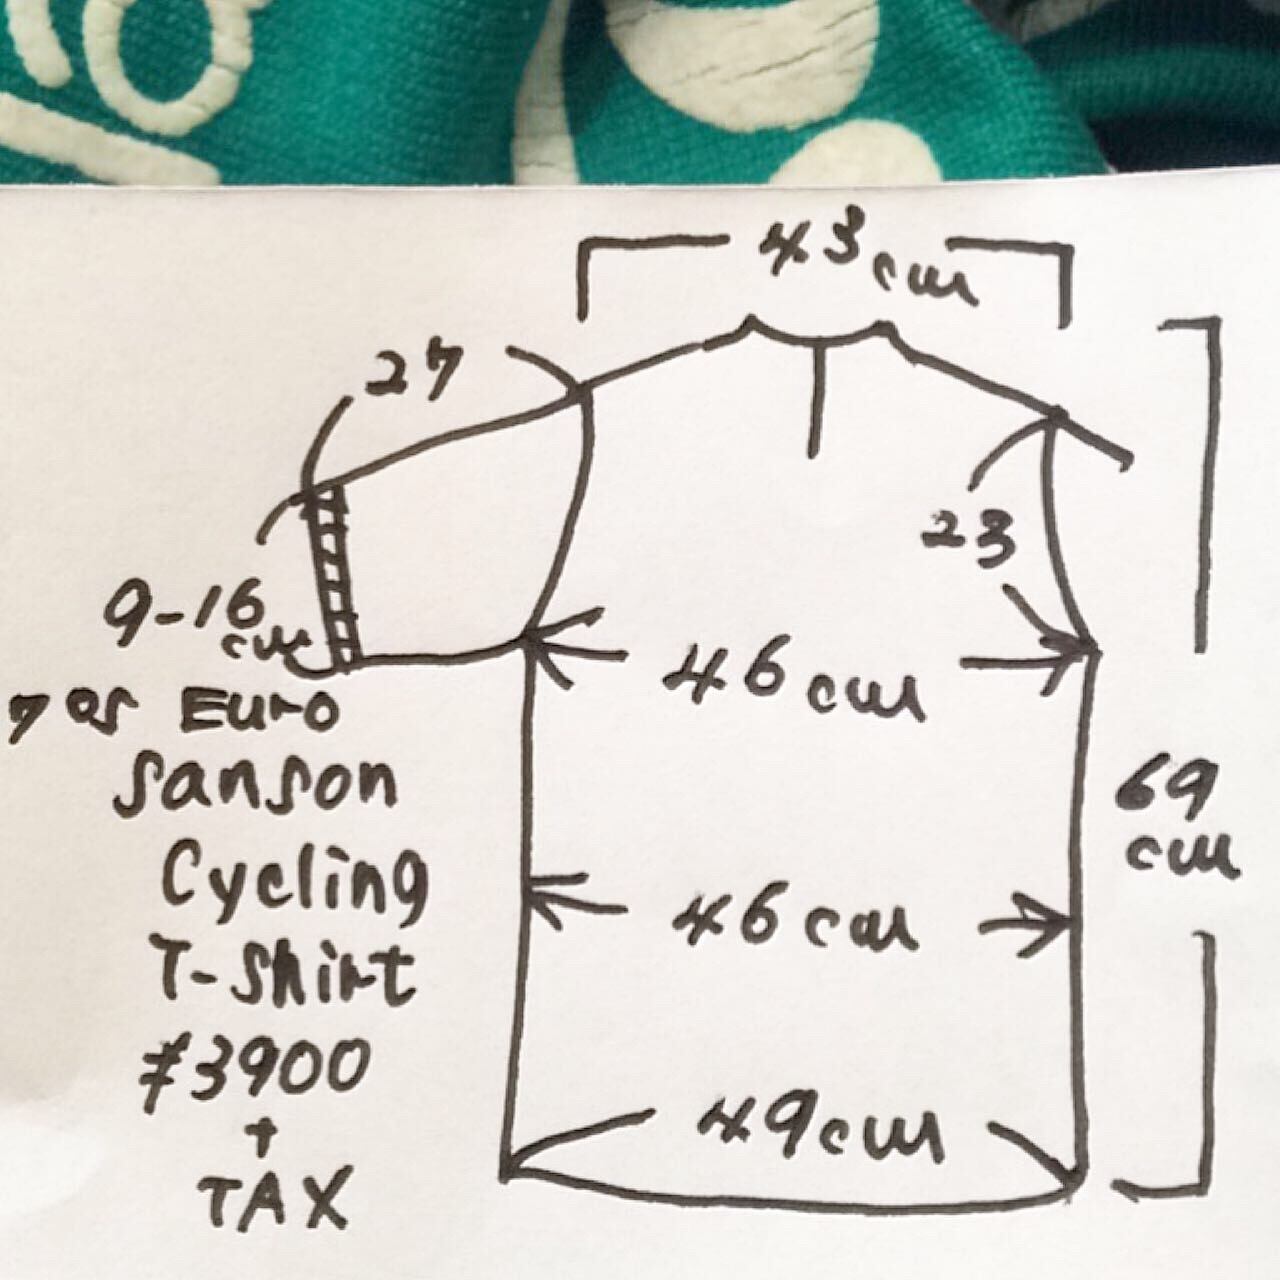 43cm
27
23
9-16
cm
46cm
70s Euro
Sanson
Cycling
T-Shirt
¥3900
+
TAX
69
cm
46cm
49cm